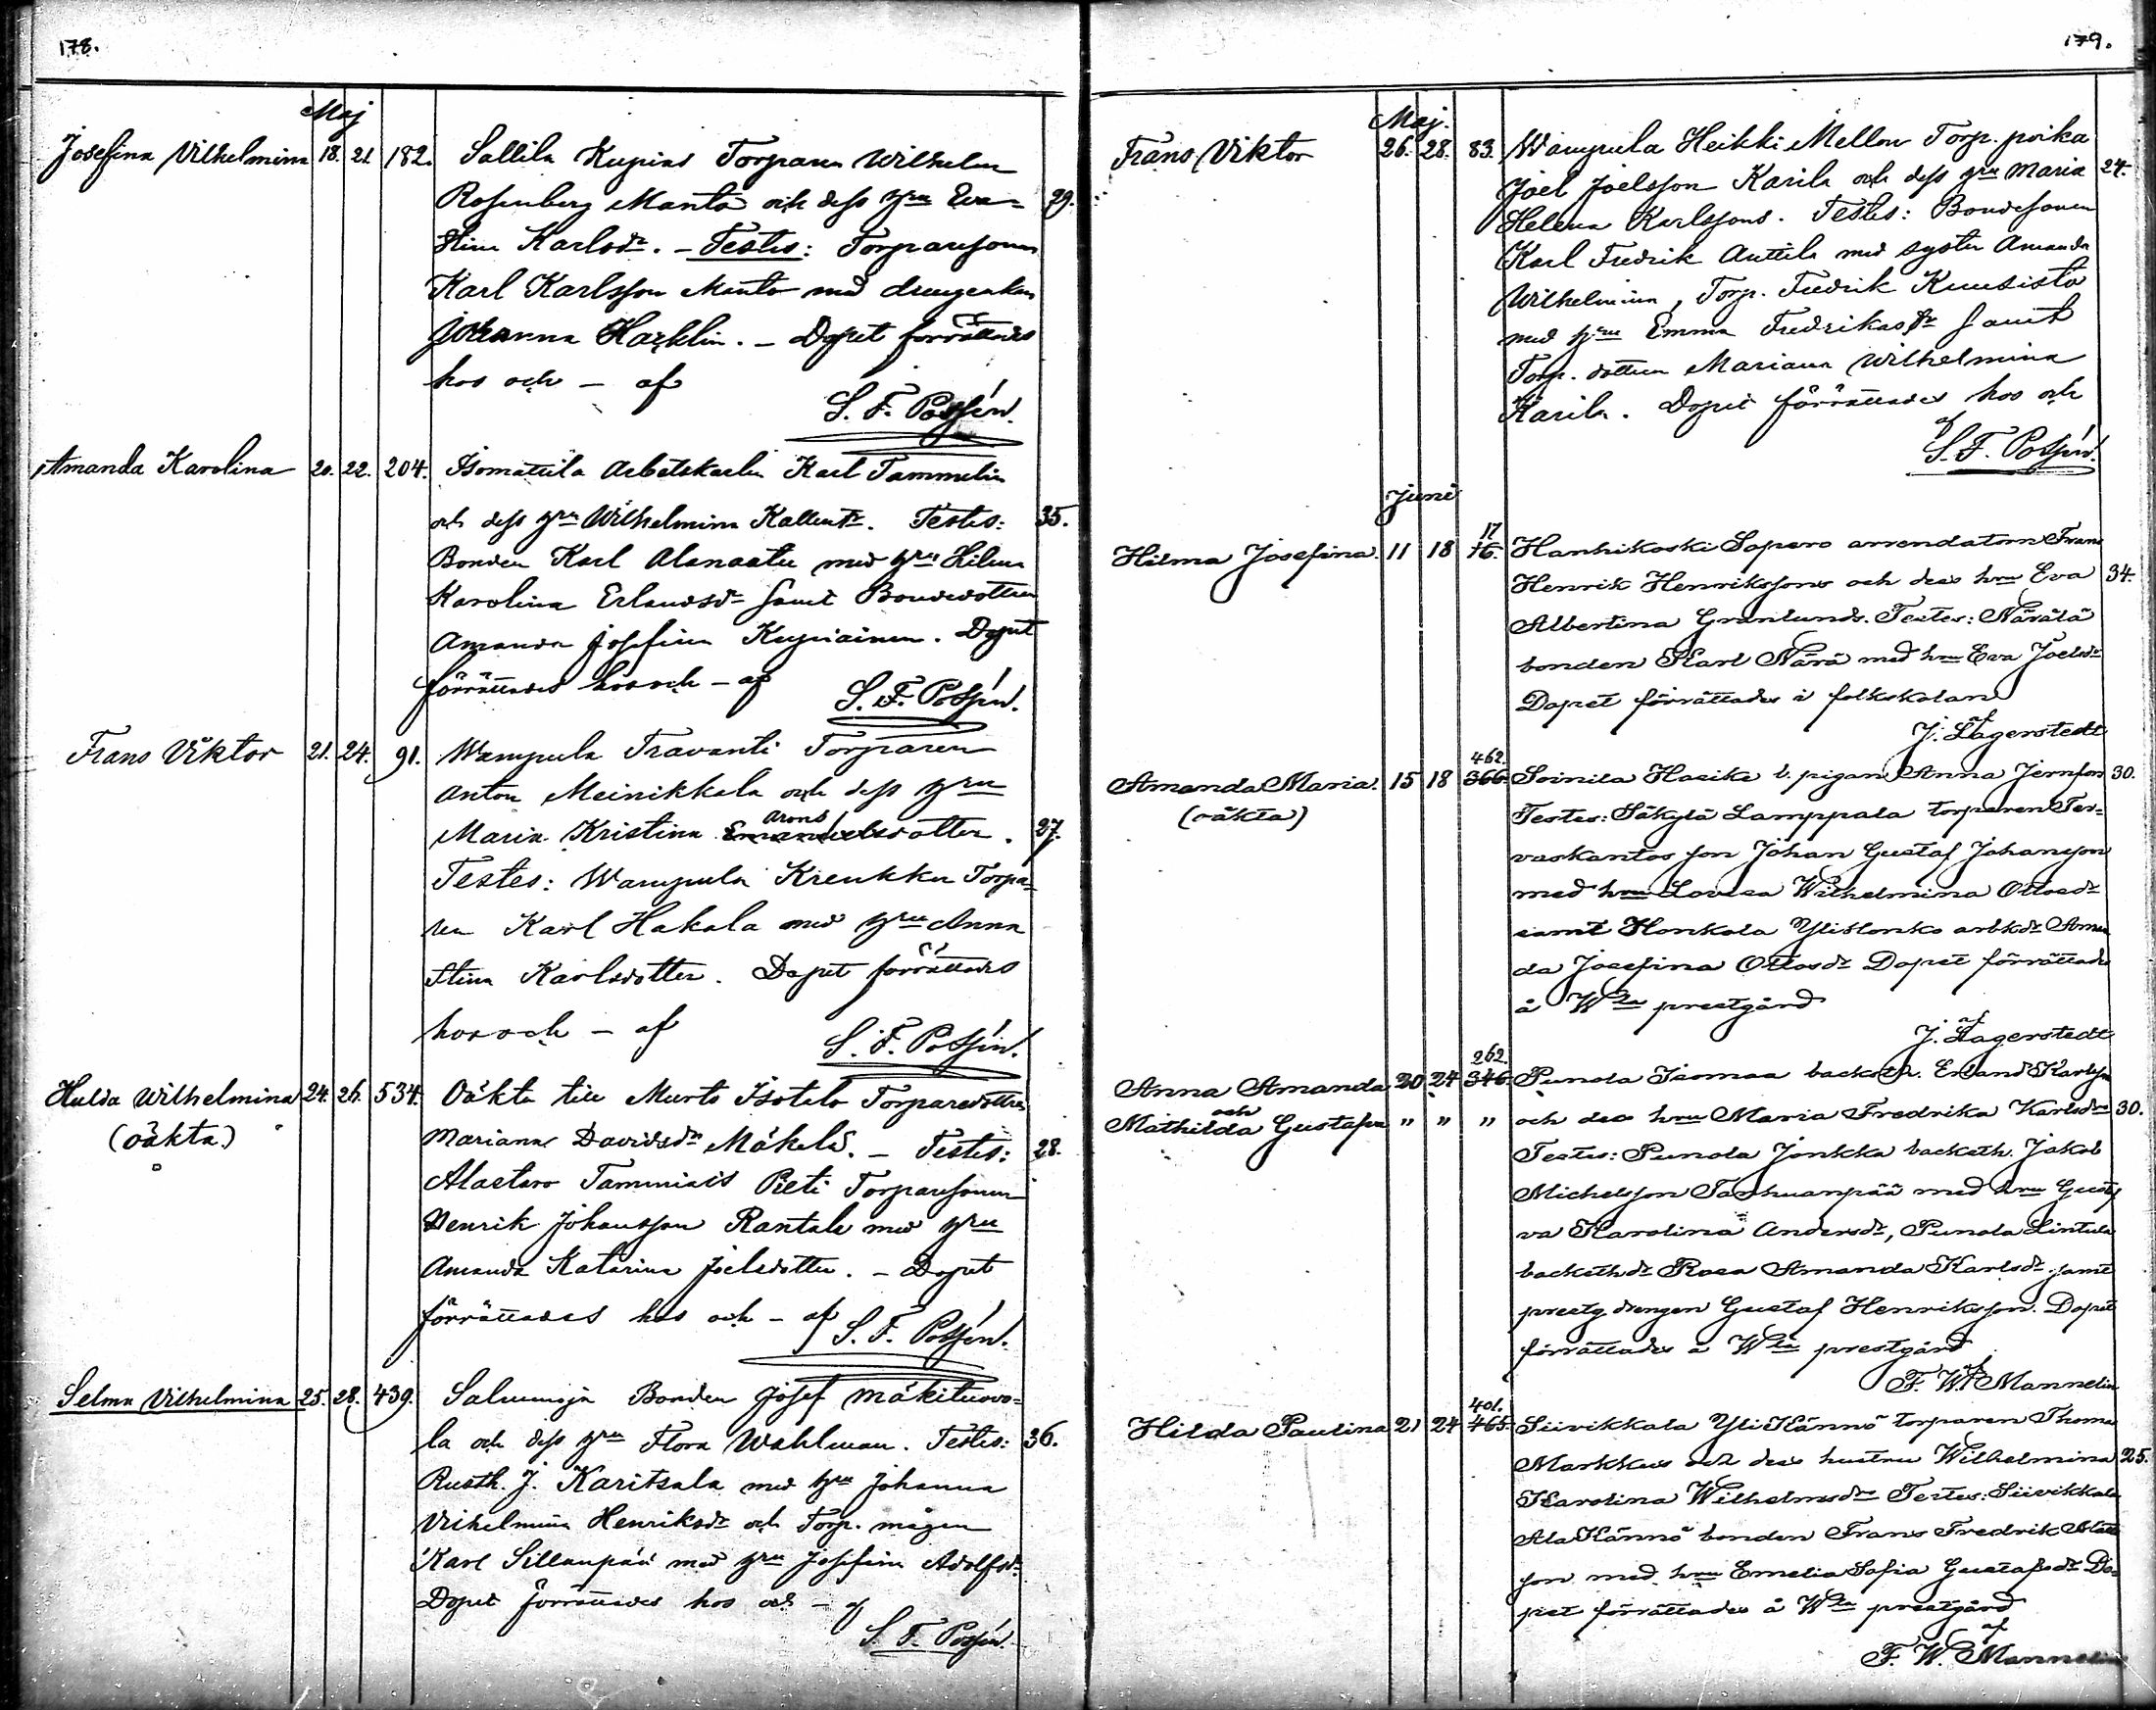 178.
Maj
Josefina Vilhelmina 18. 21. 182. Sallila Kupias Torparen Wilhelm
Rosenberg Manto och dess hru Eva 29.
Stina Karlsdr. – Testes: Torparesonen
Karl Karlsson Manto med
Johanna Hacklin. – Dopet förrättades
hos och – af
S. F. Possén.
Amanda Karolina 20. 22. 204. Isomattila Arbetskarlen Karl Tammelin
och dess hru Wilhelmina Testes: 35.
Bonden Karl Alanaatu med hru Hilma
Karolina Erlandsdr samt Bondedottren
Amanda Josefina Kupiainen. Dopet
förrättades hos och – af
S. F. Possén.
Frans Viktor 21. 24. 91. Wampula Fravanti Torparen
Anton Meinikkala och dess hru
Arons
Maria Kristina Emanuelsdotter. 27.
Testes: Wampula Kreukku Torpa-
ren Karl Hakala med hru Anna
Stina Karlsdotter. Dopet förrättades
hos och – af
S. F. Possén.
Hulda Wilhelmina 24. 26. 534. Oäkta till Murto Isotalo Torparedottren
(oäkta) Mariana Davidsdr Mäkelä. – Testes: 28.
Alastaro Tammiais Pieti Torparesonen
Henrik Johansson Rantala med hru
Amanda Katarina Joelsdotter. – Dopet
förrättades hos och – af
S. F. Possén.
Selma Vilhelmina 25. 28. 439. Salumoja Bonden Josef Mäkituovo-
la och dess hru Flora Wahlman. Testes: 36.
Rusth. J. Karitsala med hru Johanna
Vilhelmina Henriksdr och Torp. mågen
Karl Sillanpää med hru Josefina Adolfsdr
Dopet förrättades hos och – af
S. F. Possén.
179.
Maj.
Frans Viktor 26. 28. 83. Wampula Heikki Mellon Torp. poika
Joel Joelsson Karila och dess hru Maria 24.
Helena Karlssons. Testes: Bondesonen
Karl Fredrik Anttila med syster Amanda
Wilhelmina, Torp. Fredrik Kuusisto
med hru Emma Fredriksdr samt
Torp. dottren Mariana Wilhelmina
Karila. Dopet förrättades hos och
af
S. F. Possén.
Juni
17
Hilma Josefina. 11 18 16. Hanhikoski Sapero arrendatorn Frans
Henrik Henrikssons och dess hru Eva 34.
Albertina Granlunds. Testes: Närälä
bonden Karl Närä med hru Eva Joelsdr
Dopet förrättades i folkskolan
af
J. Lagerstedt
462.
Amanda Maria. 15 18 366. Soinila Hasike l. pigan Anna Jernfors 30.
(oäkta) Testes: Säkylä Lamppala torparen Ter-
vaskantos son Johan Gustaf Johansson
med hru Lovisa Wilhelmina Ottosdr
samt Honkola Ylistonko arbkdr Aman
da Josefina Ottosdr Dopet förrättades
å Wla prestgård
af
J. Lagerstedt
262.
Anna Amanda 20 24 346. Punola Isomaa backsth. Erland Karlsson
och
Mathilda Gustafva " " " och dess hru Maria Fredrika Karlsdrs 30.
Testes: Punola Jonkka backsth. Jakob
Michelsson Tanhuanpää med hru Gustaf
va Karolina Andersdr, Punola Lintula
backsthdr Rosa Amanda Karlsdr samt
prestg drengen Gustaf Henriksson. Dopet
förrättades å Wla prestgård
af
F. W. Mannelin
401.
Hilda Paulina 21 24 465. Siivikkala Yli Kännö torparen Thomas
Markkus och dess hustru Wilhelmina 25.
Karolina Wilhelmsdrs Testes: Siivikkala
Ala Kännö bonden Frans Fredrik
son med hru Emelia Sofia Gustafsdr Do-
pet förrättades å Wla prestgård
af
F. W. Mannelin